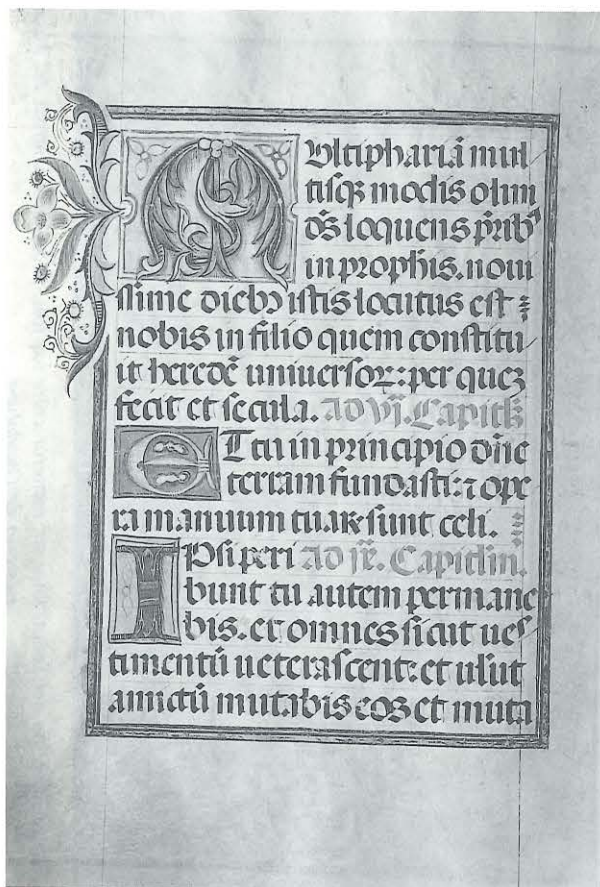 MUltiphariā mul
tisq₃ modis olim
dš loquens p̄rib⁹
in prophīs. noui
ssime dieb₃ istis locutus est
nobis in filio quem constitu
it heredē uniuersoꝝ: per quez
fecit et secula. Ad vj. Capitł₃
ET tu in principio dn̄e
terram fundasti: ⁊ ope
ra manuum tuaꝝ sunt celi.
IPsi peri Ad ix. Capitlm̄.
bunt tu autem permane
bis. et omnes sicut ues
timentū ueterascent: et ułut
amictū mutabis eos et muta